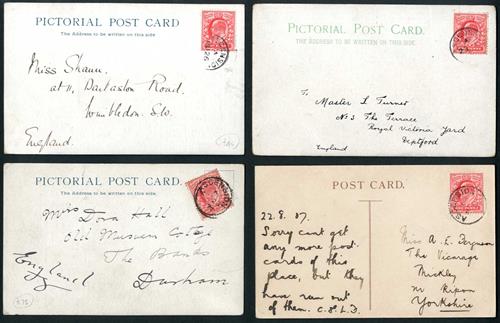 PICTORIAL POST CARD.
The Address to be written on this side
Miss Shann.
at 11, Darlaston Road.
Wimbledon. S.W.
England.
PICTORIAL POST CARD.
THE ADDRESS TO BE WRITTEN ON THIS SIDE.
To
Master L Turner
No 3 The Terrace
Royal Victoria Yard
Deptford
England
PICTORIAL POST CARD.
The Address to be written on this side.
Miss Dora Hall
Old Museum Cottage
The Banks
Durham
England
POST CARD.
22.8.07.
Sorry cant get
any more post
cards of this
place, but they
have run out
of them. C.E.L.D.
Miss A. E. Ferguson
The Vicarage
Mickley
nr Ripon
Yorkshire
ASCENSION